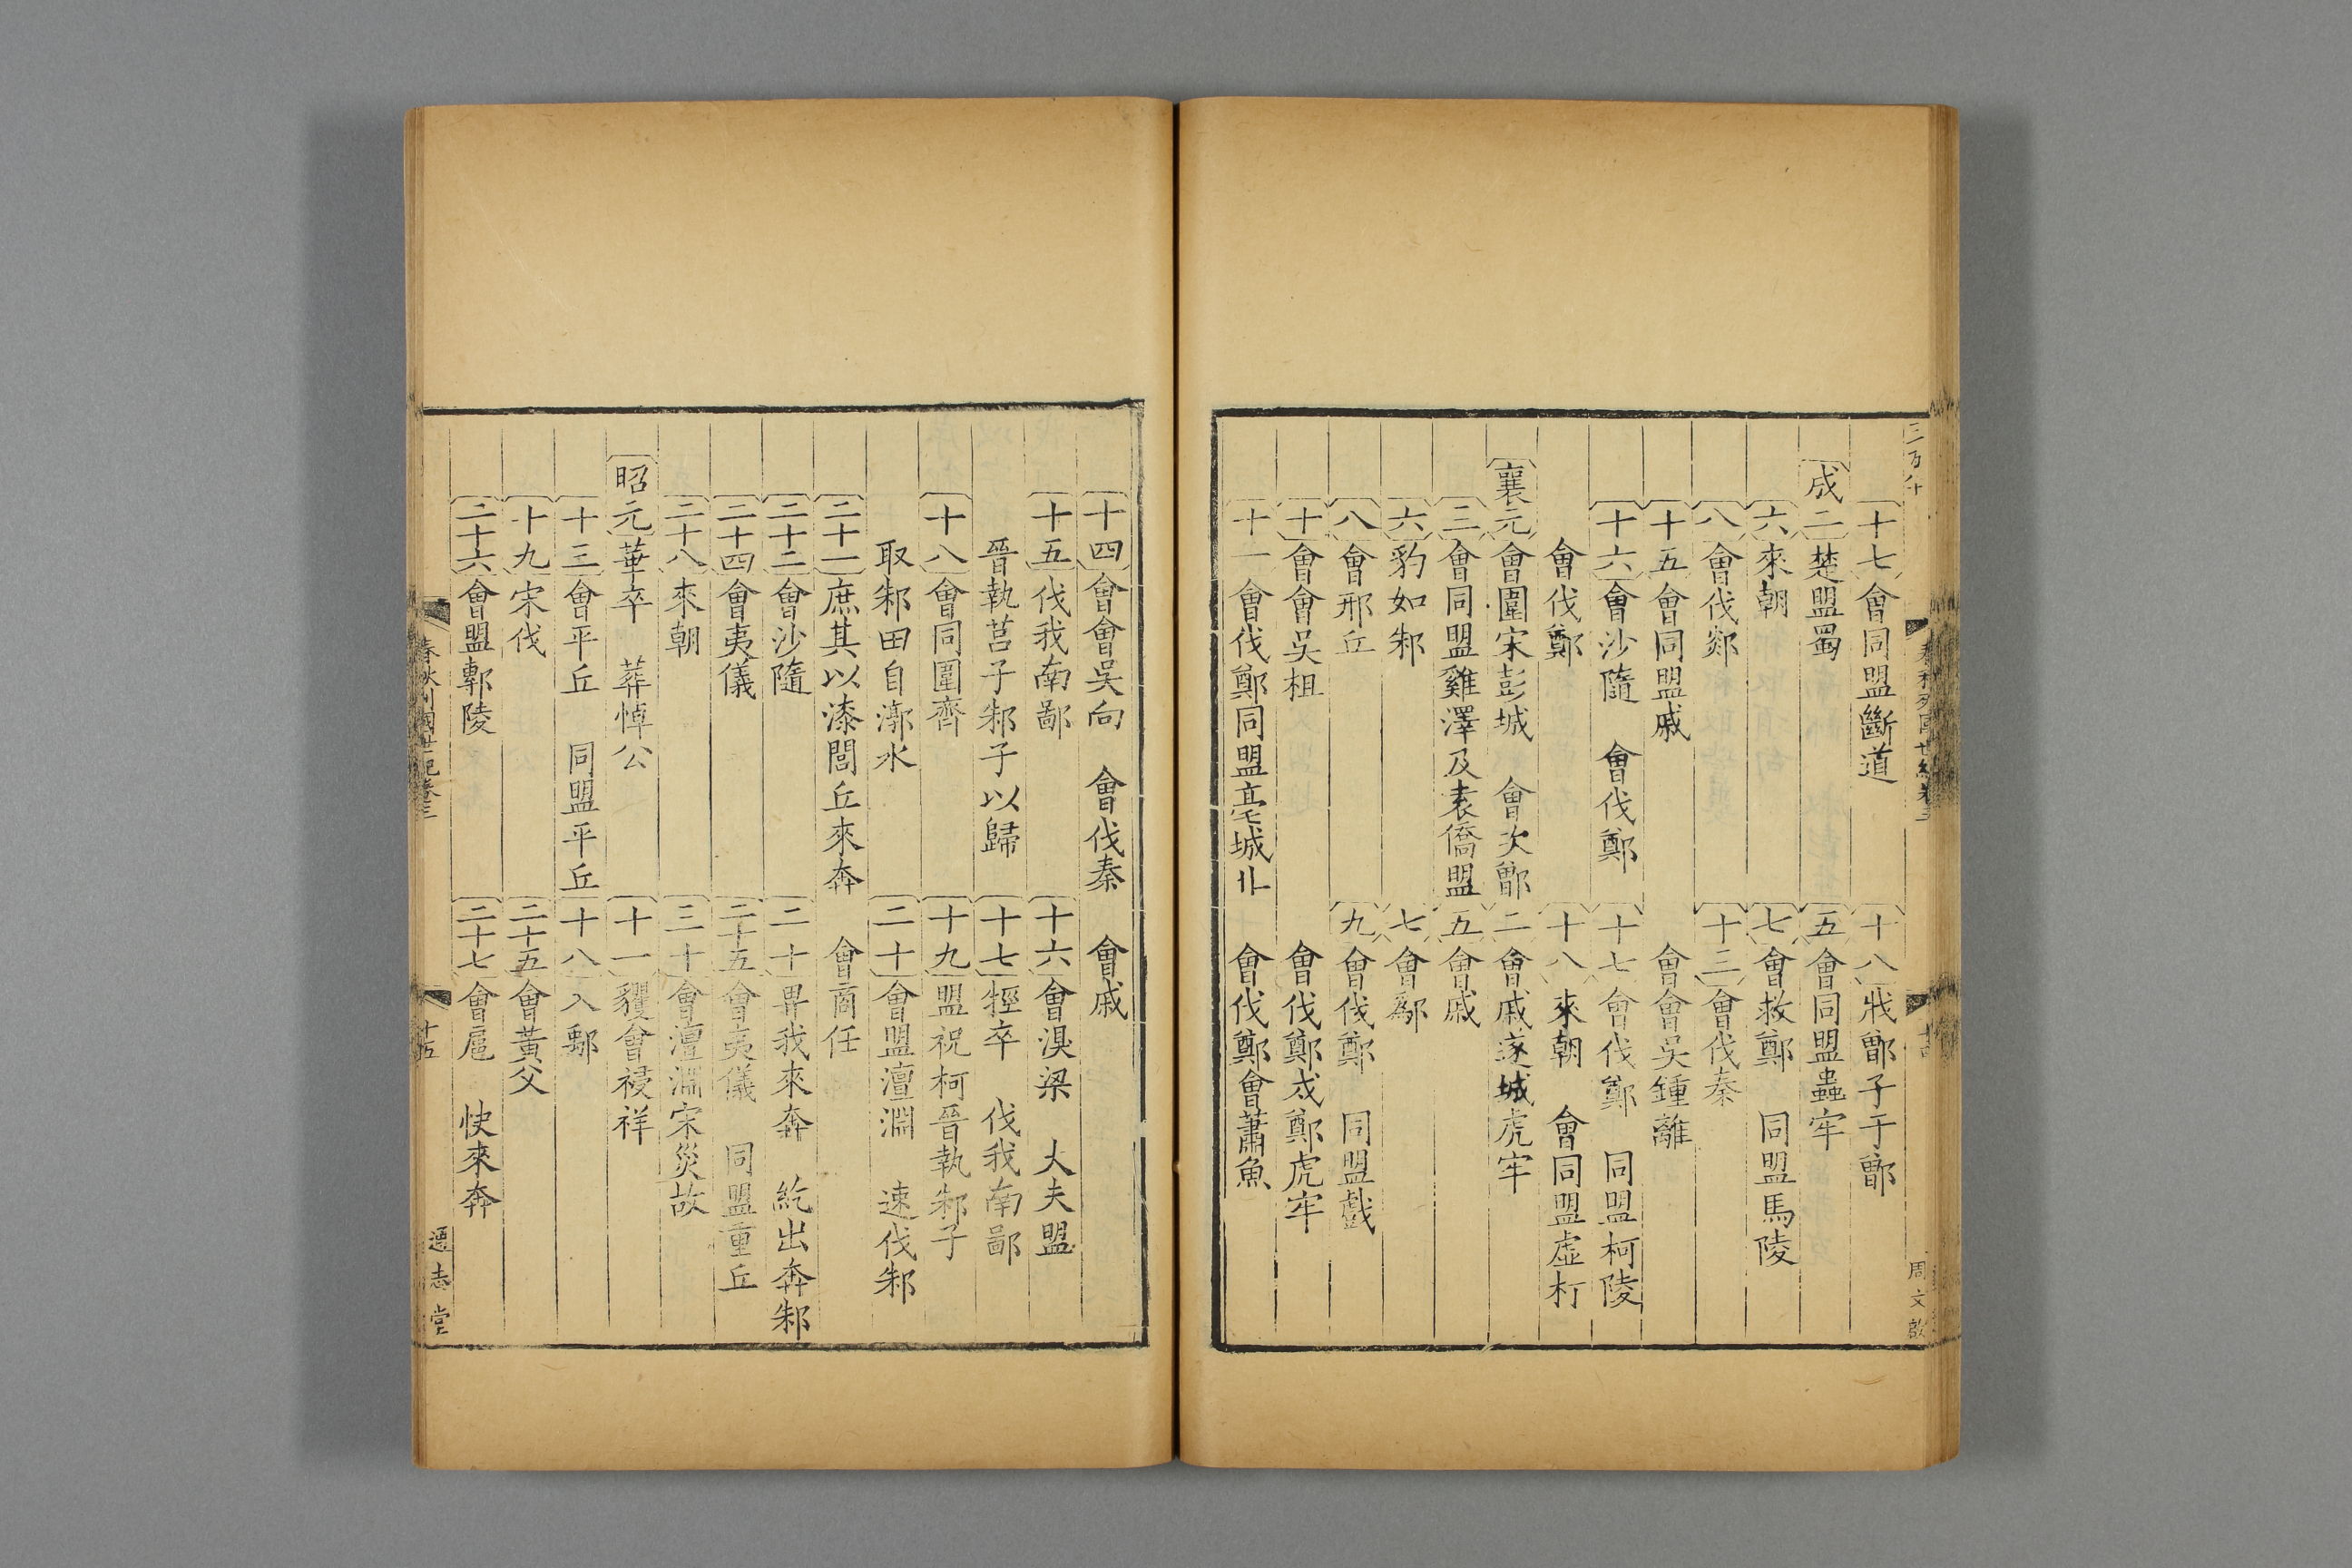 十七會同盟斷道 十八戕鄫子于鄫
成二楚盟蜀 五會同盟蟲牢
六來朝 七會救鄭 同盟馬陵
八會伐郯 十三會伐秦
十五會同盟戚 會會吳鍾離
十六會沙隨 會伐鄭 十七會伐鄭 同盟柯陵
會伐鄭 十八來朝 會同盟虛朾
襄元會圍宋彭城 會次鄫 二會戚遂城虎牢
三會同盟雞澤及袁僑盟 五會戚
六豹如邾 七會鄬
八會邢丘 九會伐鄭 同盟戲
十會會吳柤 會伐鄭戍鄭虎牢
十一會伐鄭同盟亳城北 會伐鄭會蕭魚
周文啟
十四會會吳向 會伐秦 會戚
十五伐我南鄙 十六會溴梁 大夫盟
晉執莒子邾子以歸 十七牼卒 伐我南鄙
十八會同圍齊 十九盟祝柯晉執邾子
取邾田自漷水 二十會盟澶淵 速伐邾
二十一庶其以漆閭丘來奔 會商任
二十二會沙隨 二十畀我來奔 紇出奔邾
二十四會夷儀 二十五會夷儀 同盟重丘
二十八來朝 三十會澶淵宋災故
昭元華卒 葬悼公 十一貜會祲祥
十三會平丘 同盟平丘 十八入鄅
十九宋伐 二十五會黃父
二十六會盟鄟陵 二十七會扈 快來奔
春秋列國世紀卷三 十五 通志堂